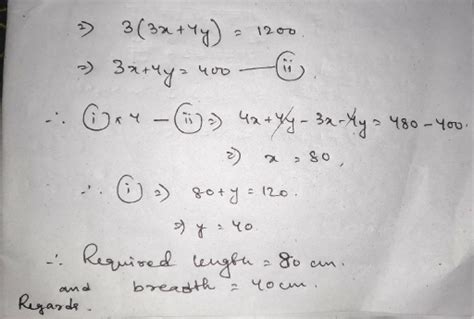 ⇒ 3(3x+4y) = 1200.
⇒ 3x+4y = 400 — (ii)
∴ (i) × 4 - (ii) ⇒ 4x + 4y - 3x - 4y = 480 - 400.
⇒ x = 80,
∴ (i) ⇒ 80+y = 120.
⇒ y = 40.
∴ Required length = 80 cm.
and breadth = 40 cm.
Regards.